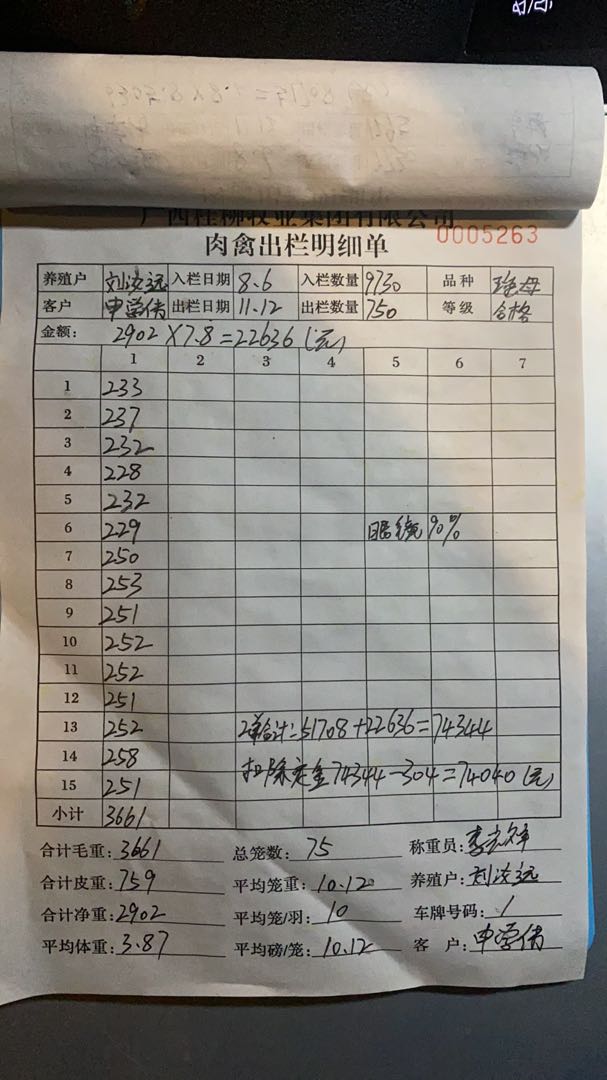 广西桂柳牧业集团有限公司
肉禽出栏明细单
0005263
养殖户 刘汝远 入栏日期 8.6 入栏数量 9730 品种
客户 申学倩 出栏日期 11.12 出栏数量 750 等级 合格
金额: 2902×7.8=22636(元)
1 2 3 4 5 6 7
1 233
2 237
3 232
4 228
5 232
6 229 90%
7 250
8 253
9 251
10 252
11 252
12 251
13 252 2单合计:51708+22636=74344
14 258
扣除定金74344-304=74040(元)
15 251
小计 3661
合计毛重: 3661 总笼数: 75 称重员:
合计皮重: 759 平均笼重: 10.12 养殖户: 刘汝远
合计净重: 2902 平均笼/羽: 10 车牌号码: /
平均体重: 3.87 平均磅/笼: 10.12 客 户: 申学倩